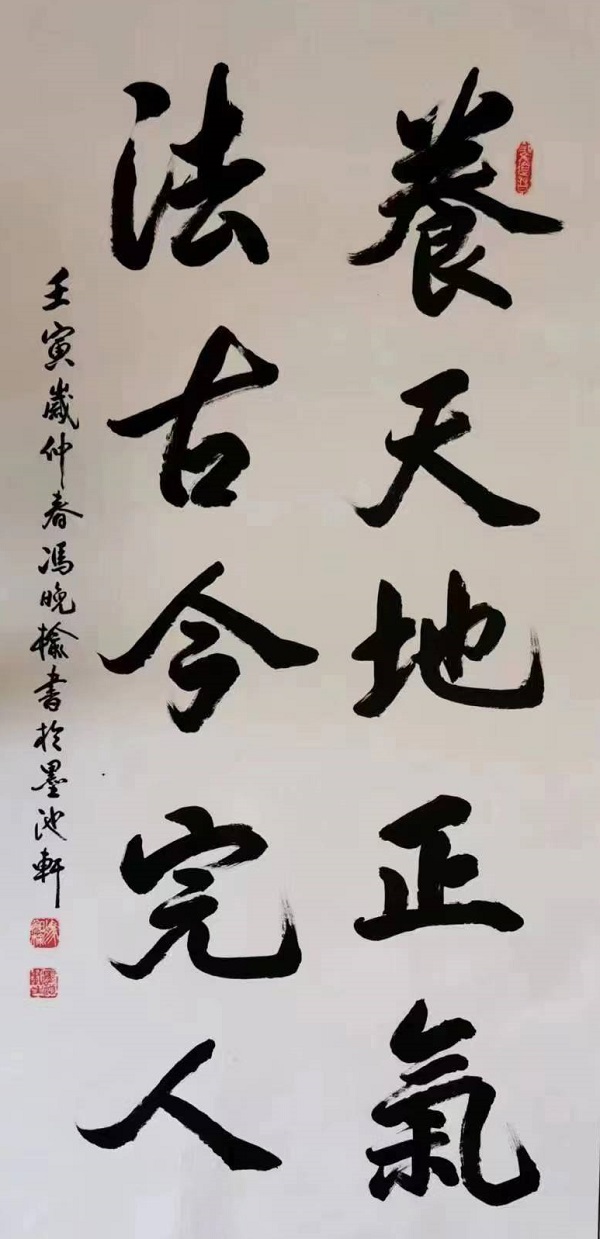 養天地正氣
法古今完人
壬寅歲仲春馮晚榆書於墨池軒